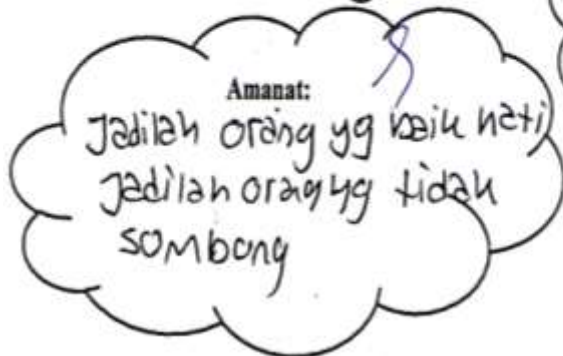 Amanat:
Jadilah orang yg baik hati
Jadilah orag yg tidak
sombong